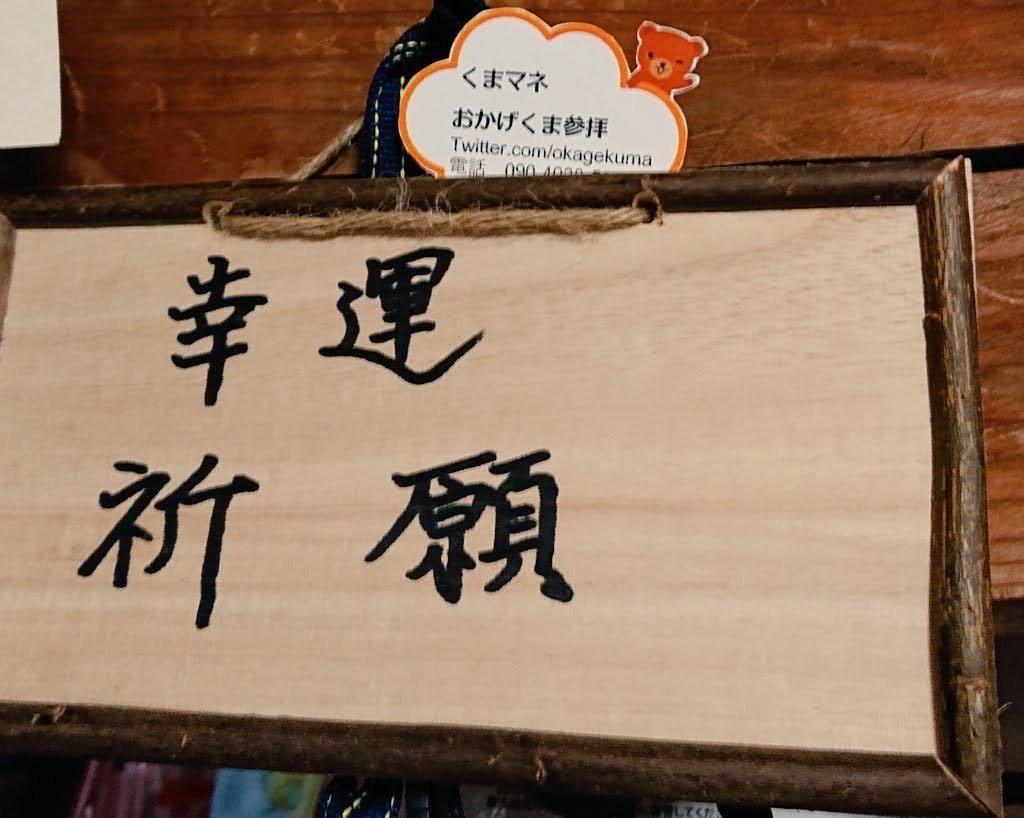 くまマネ
おかげくま参拝
Twitter.com/okagekuma
電話 090
幸運
祈願